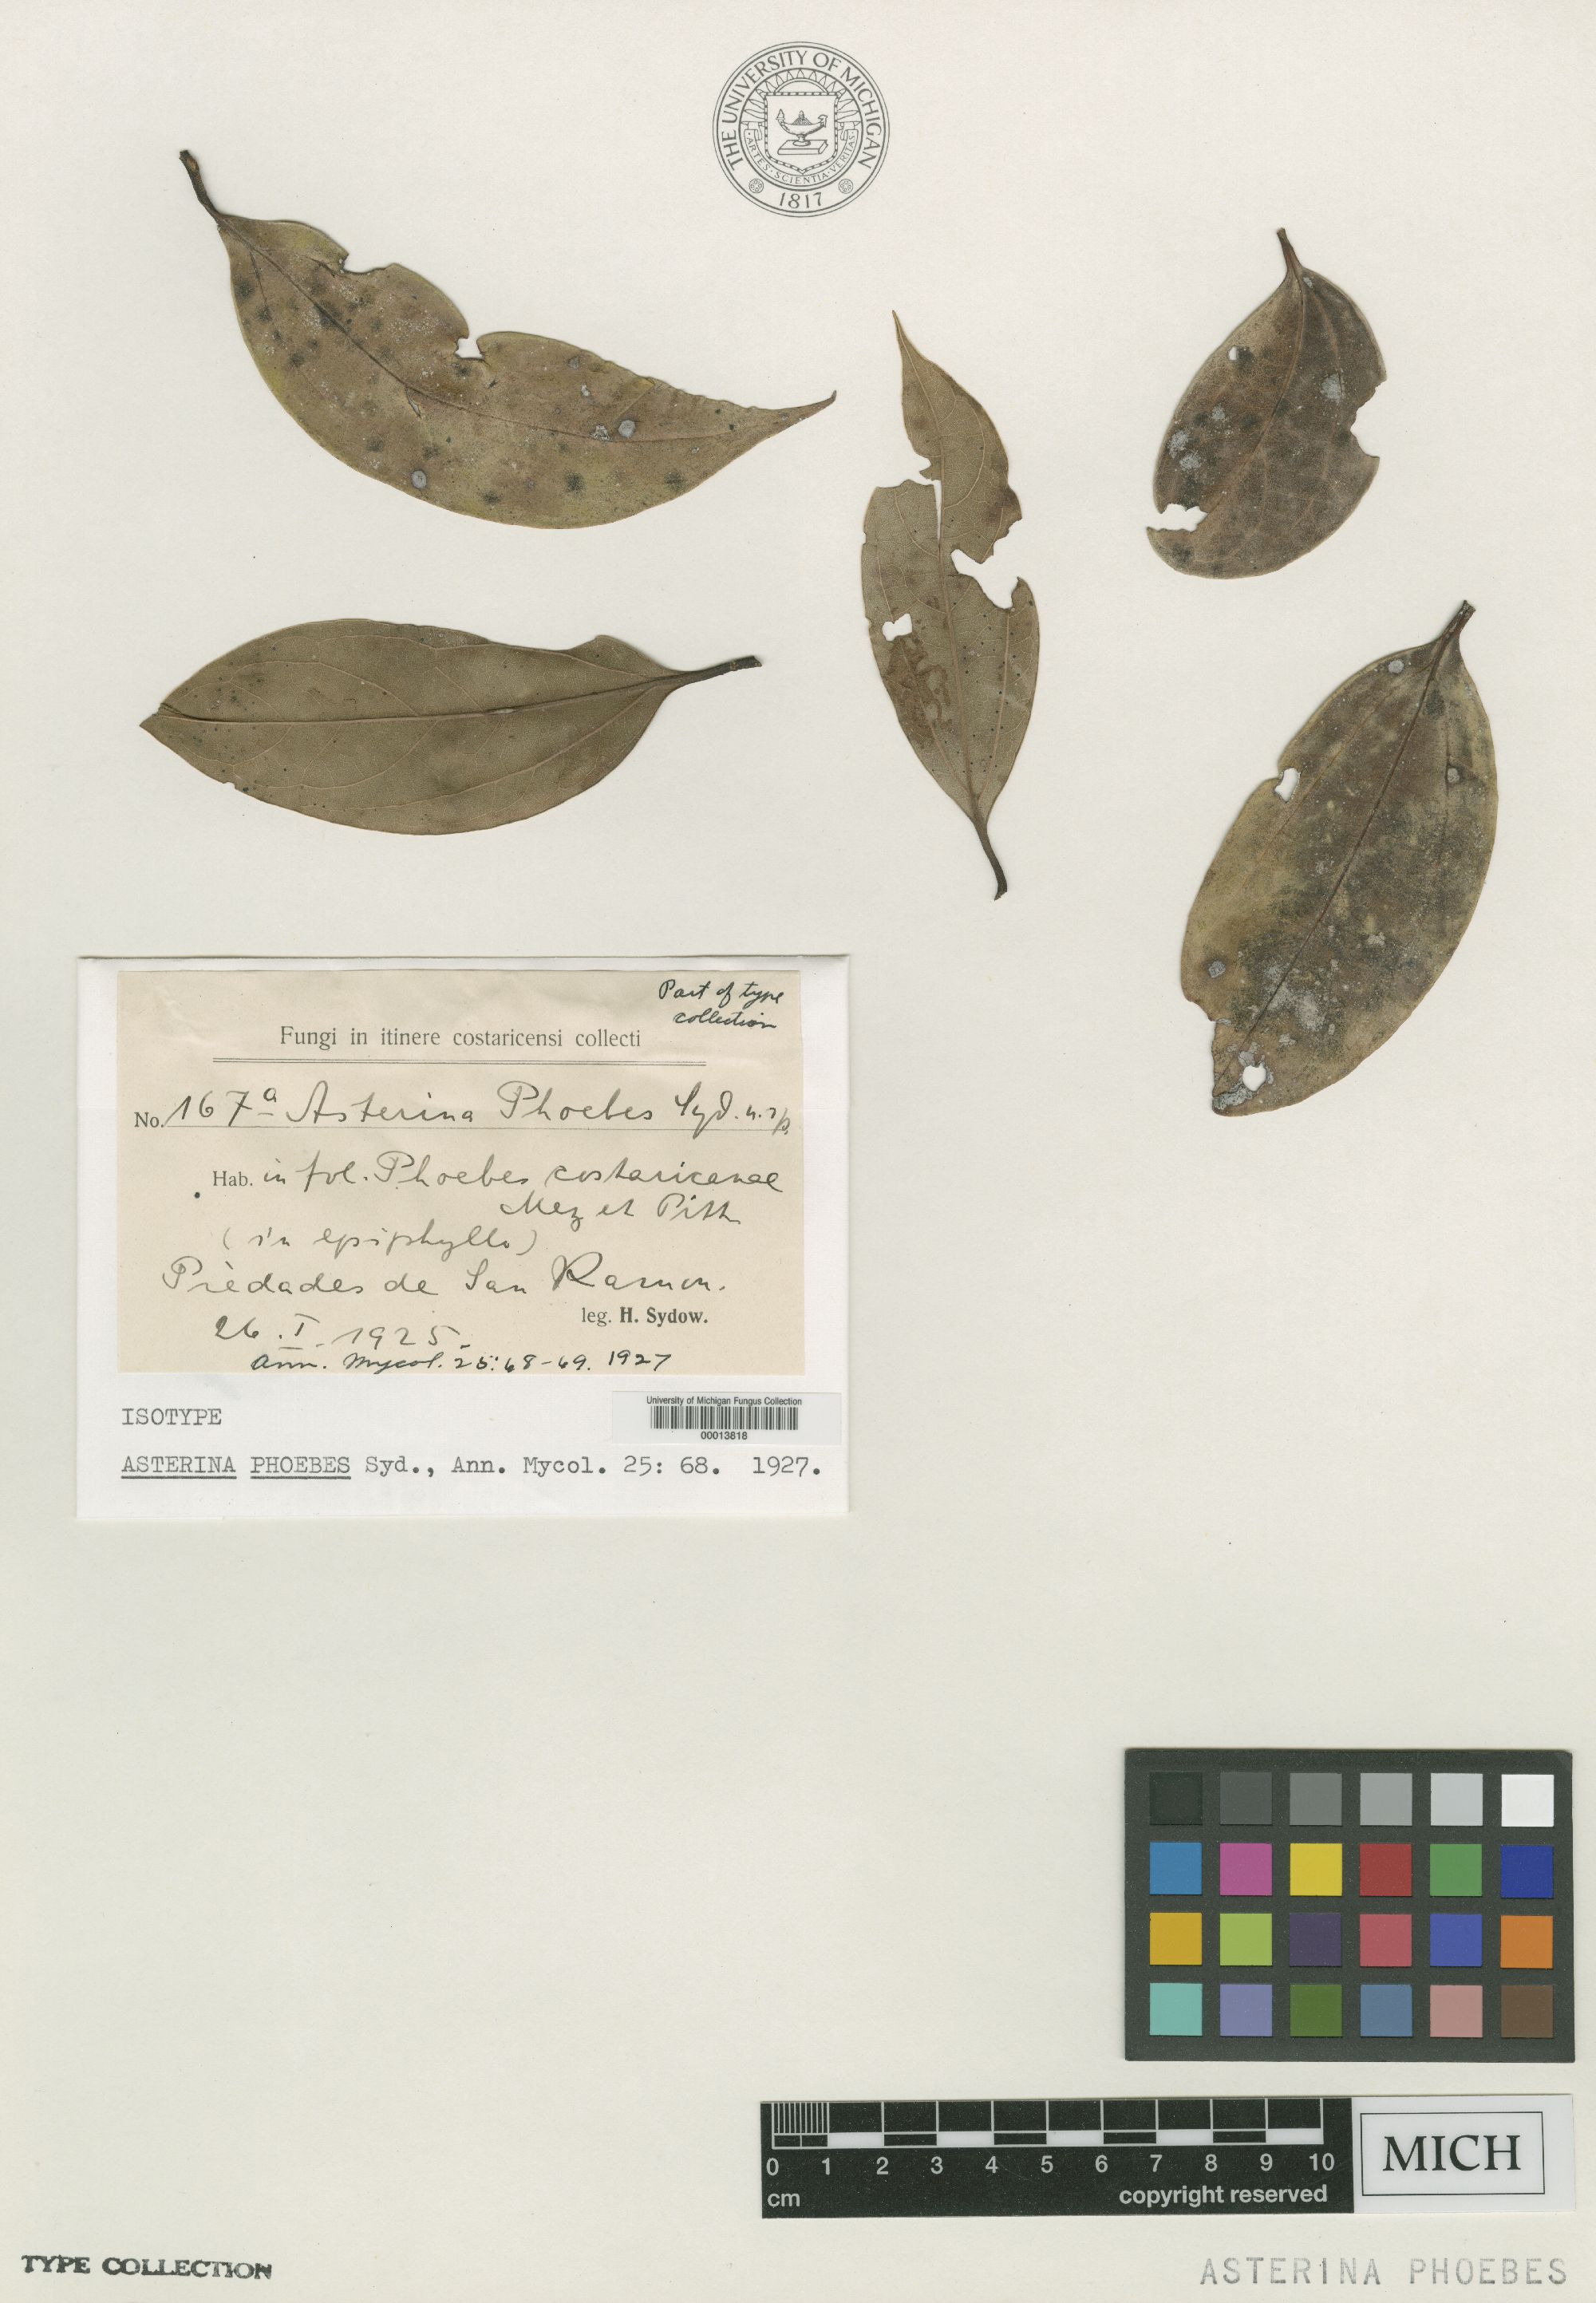 THE UNIVERSITY OF MICHIGAN
ARTES · SCIENTIA · VERITAS
1817
Part of type
collection
Fungi in itinere costaricensi collecti
No. 167a Asterina Phoebes Syd. n. sp.
Hab. in fol. Phoebes costaricanae
Mez et Pitt
(in epiphyllo)
Piedades de San Ramon.
leg. H. Sydow.
26. I. 1925.
Ann. Mycol. 25: 68-69. 1927
ISOTYPE
University of Michigan Fungus Collection
00013818
ASTERINA PHOEBES Syd., Ann. Mycol. 25: 68. 1927.
0 1 2 3 4 5 6 7 8 9 10
cm
copyright reserved
MICH
TYPE COLLECTION
ASTERINA PHOEBES